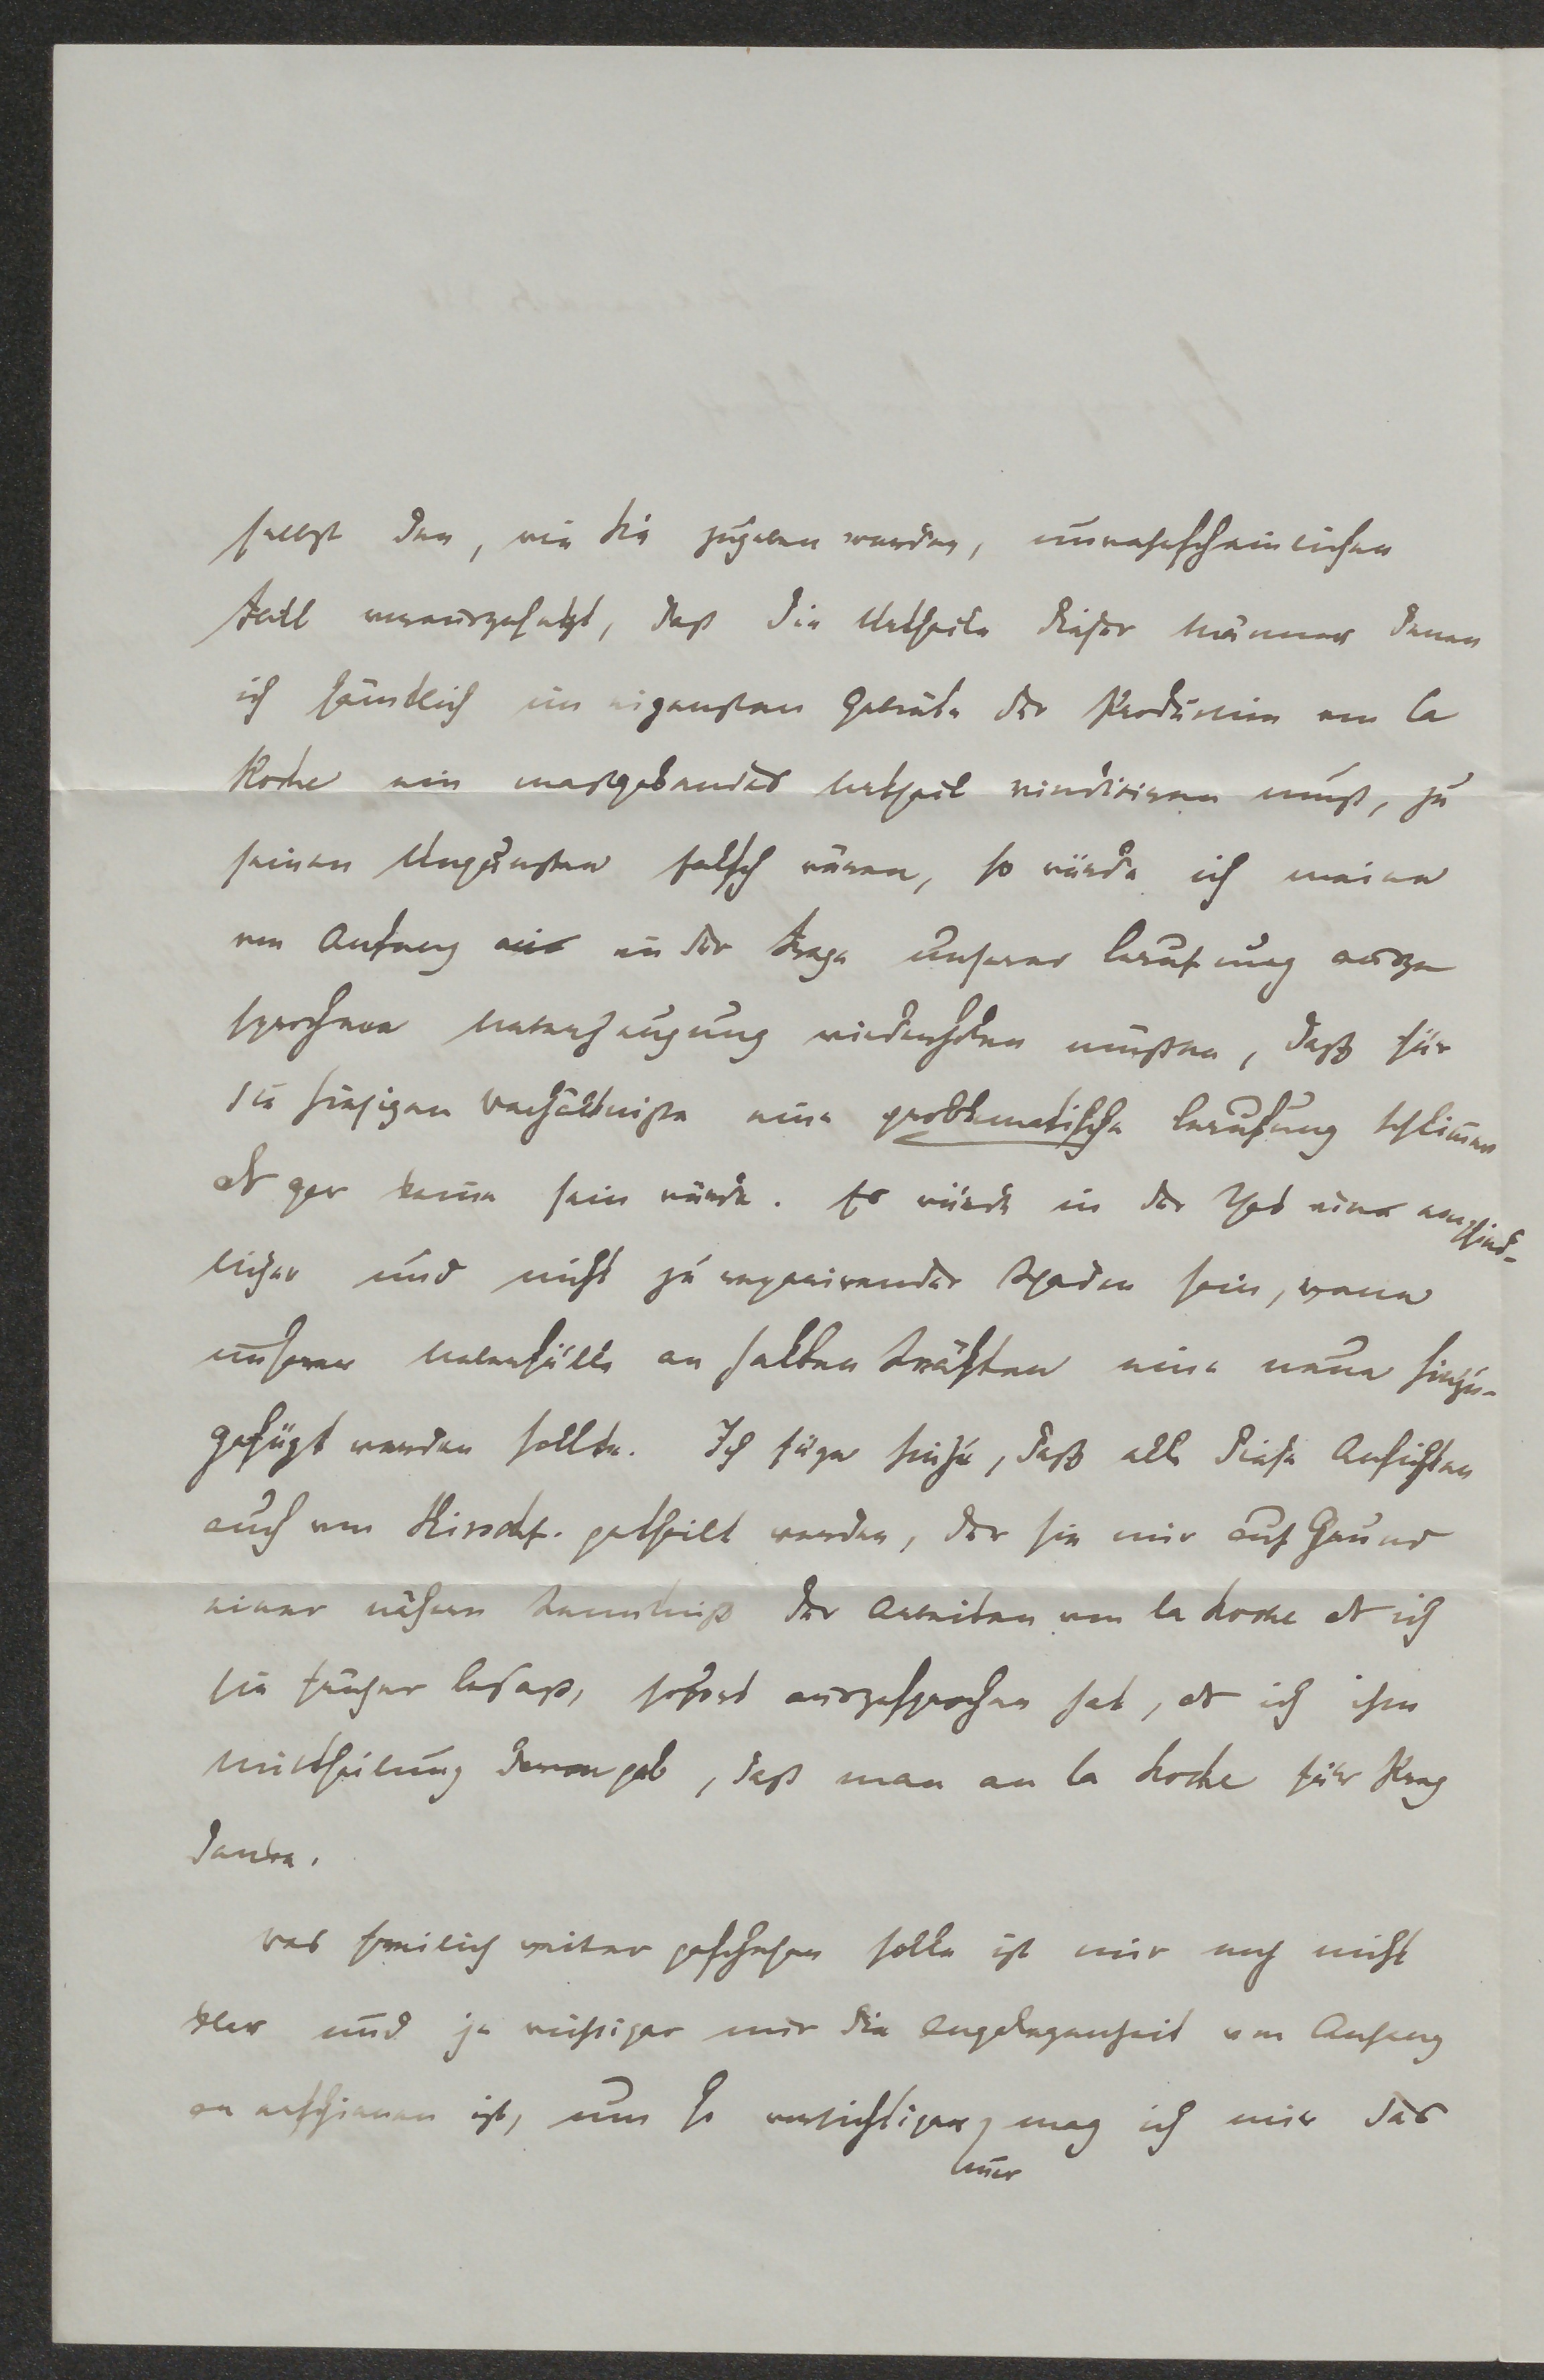 selbst den, wie Sie zugeben werden, unwahrscheinlichen
Fall vorausgesetzt, daß die Urtheile dieser Männer denen
ich sämtlich im eigensten Gebiete der Produktion von la
Roche ein maßgebendes Urtheil vindiciren muß, zu
seinen Ungunsten falsch wären, so würde ich meine
von Anfang an in der Frage unserer Berufung ausge
sprochene Ueberzeugung wiederholen müßen, daß für
die hiesigen Verhältniße eine problematische Berufung schlimmer
als gar keine sein würde. Es würde in der That ein empfind-
licher und nicht zu reparirender Schaden sein, wenn
unserer Ueberfülle an halben Kräften eine neue hinzu-
gefügt werden sollte. Ich füge hinzu, daß alle diese Ansichten
auch von Hirschf. getheilt werden, der sie mir auf Grund
einer nähern Kenntniß der Arbeiten von la Roche als ich
sie früher besaß, sofort ausgesprochen hat, als ich ihm
Mittheilung davon gab, daß man an la Roche für Prag
denke.
Was freilich weiter geschehen solle ist mir noch nicht
klar und je wichtiger mir die Angelegenheit von Anfang
an erschienen ist, um so vorsichtiger mag ich mir das
nur